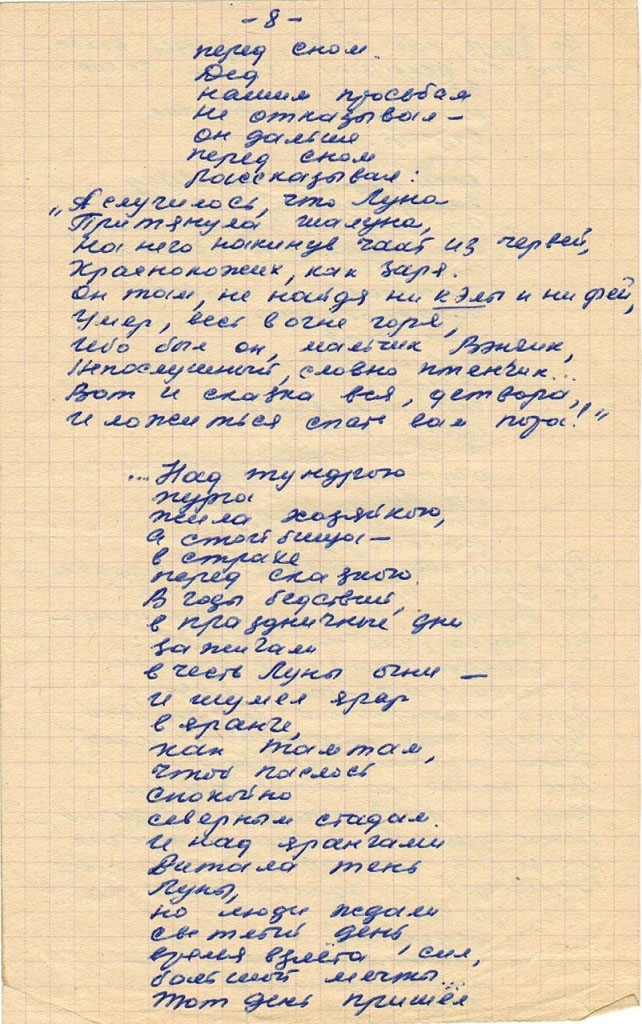 - 8 -
перед сном.
Дед
нашим просьбам
не отказывал –
он дальше
перед сном
рассказывал:
„А случилось, что Луна
Притянула шалуна,
На него накинув чаат из червей,
Краснокожих, как заря.
Он там, не найдя ни кэлы и ни фей,
Умер, весь в огне горя,
Ибо был он, мальчик Вэнчик,
Непослушный, словно птенчик...
Вот и сказка вся, детвора,
И ложиться спать вам пора!"
...Над тундрою
пурга
жила хозяйкою,
а стойбища –
в страхе
перед сказкою.
В годы бедствий,
в праздничные дни
зажигали
в честь Луны огни –
и шумел ярар
в яранге,
как тамтам,
чтоб паслось
спокойно
северным стадам.
И над ярангами
витала тень
Луны,
но люди ждали
светлый день,
время взлёта сил,
большой мечты...
Тот день пришёл